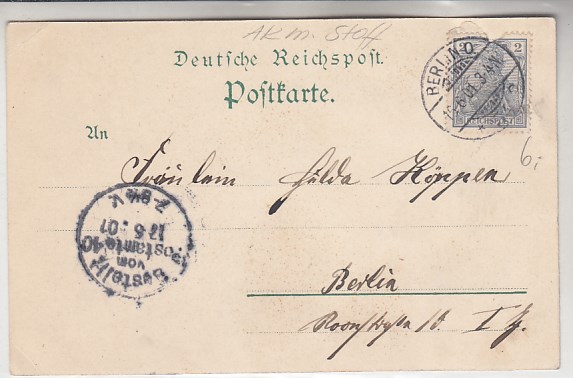 AK m. Stoff
Deutsche Reichspost.
Postkarte.
An
BERLIN O
2
REICHSPOST
6,-
Fräulein Hulda Köppen
Bestellt
vom
Postamte 40
17 6 01
7-8¼V.
Berlin
Roonstraße